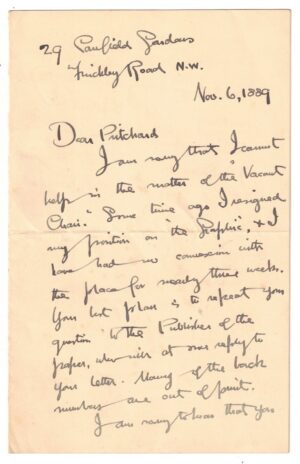 29 Canfield Gardens
Finchley Road N.W.
Nov. 6, 1889
Dear Pritchard
I am sorry that I cannot
help in the matter of the "Vacant
Chair." Some time ago I resigned
my position on the "Graphic", & I
have had no connexion with
the place for nearly three weeks.
Your best plan is to repeat your
question to the Publisher of the
paper, who will at once reply to
your letter. Many of the back
numbers are out of print.
I am sorry to hear that you